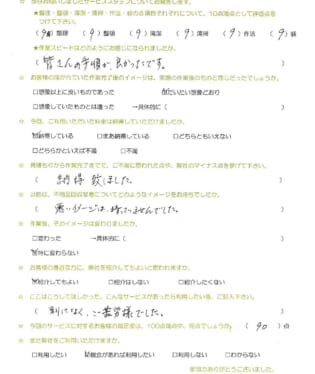 ☆ 今日お伺いしましたサービススタッフについてお聞きします。
・整理・整頓・清潔・清掃・作法・躾の各項目それぞれについて、10点満点として評価点を
つけて下さい。
(9)整理 (9)整頓 (9)清潔 (9)清掃 (9)作法 (9)躾
★作業スピードはどのようにお感じになられましたか。
(皆さんの手順が良かったです。)
☆ お客様の描かれていた作業完了後のイメージは、実際の作業後のものと同じだったでしょうか。
□想像以上に良いものであった ☑だいたい想像どおり
□想像していたものとは違った →具体的に( )
☆ 今回、ご利用いただいた料金は納得していただけましたか。
☑納得している □まあ納得している □どちらともいえない
□どちらかといえば不満 □不満
☆ 見積もりから作業完了までで、ご不満に思われた点や、弊社のマイナス点を挙げて下さい。
(納得致しました。)
☆ 以前は、不用品回収業者についてどのようなイメージをお持ちでしたか。
(悪いイメージは、持っていませんでした。)
☆ 作業後、そのイメージは変わりましたか。
□変わった →具体的に( )
☑特に変わらない
☆ お客様の身近な方に、弊社を紹介してもよいと思われますか。
☑紹介してもよい □紹介はしない □紹介したくない
☆ ここはこうしてほしかった、こんなサービスがあったら利用したい等、ご記入下さい。
(別になく、ご苦労様でした。)
☆ 今回のサービスに対するお客様の満足度は、100点満点中、何点でしょうか。(90)点
☆ また弊社をご利用いただけますか。
□利用したい ☑機会があれば利用したい □利用しない □わからない
ご協力ありがとうございました。